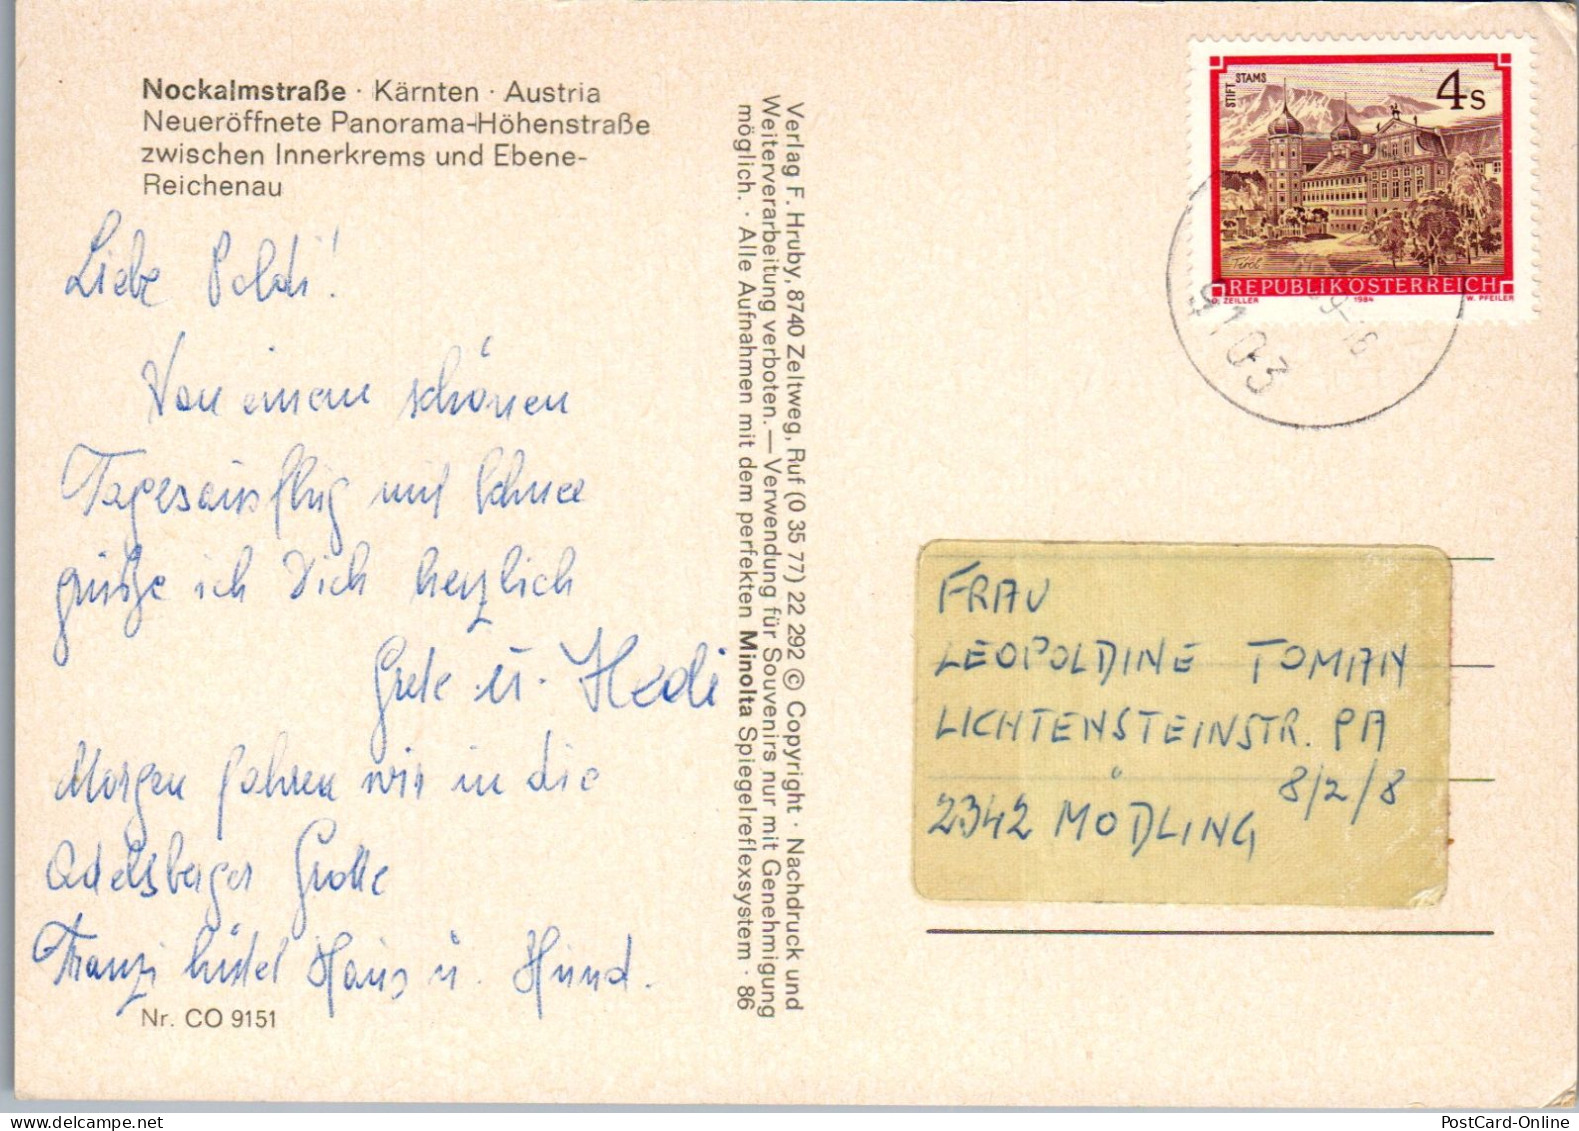 Nockalmstraße · Kärnten · Austria
Neueröffnete Panorama-Höhenstraße
zwischen Innerkrems und Ebene-
Reichenau
Liebe Poldi!
Von einem schönen
Tagesausflug mit Schnee
grüße ich Dich herzlich
Grete u. Hedi
Morgen fahren wir in die
Adelsberger Grotte
Franzi hütet Haus u. Hund.
Nr. CO 9151
Verlag F. Hruby, 8740 Zeltweg, Ruf (0 35 77) 22 292 © Copyright · Nachdruck und
Weiterverarbeitung verboten. — Verwendung für Souvenirs nur mit Genehmigung
möglich. · Alle Aufnahmen mit dem perfekten Minolta Spiegelreflexsystem · 86
STIFT STAMS
4 s
Tirol
REPUBLIK ÖSTERREICH
O. ZEILLER 1984 W. PFEILER
9103
FRAU
LEOPOLDINE TOMAN
LICHTENSTEINSTR. PA
8/2/8
2342 MÖDLING
PostCard-Online